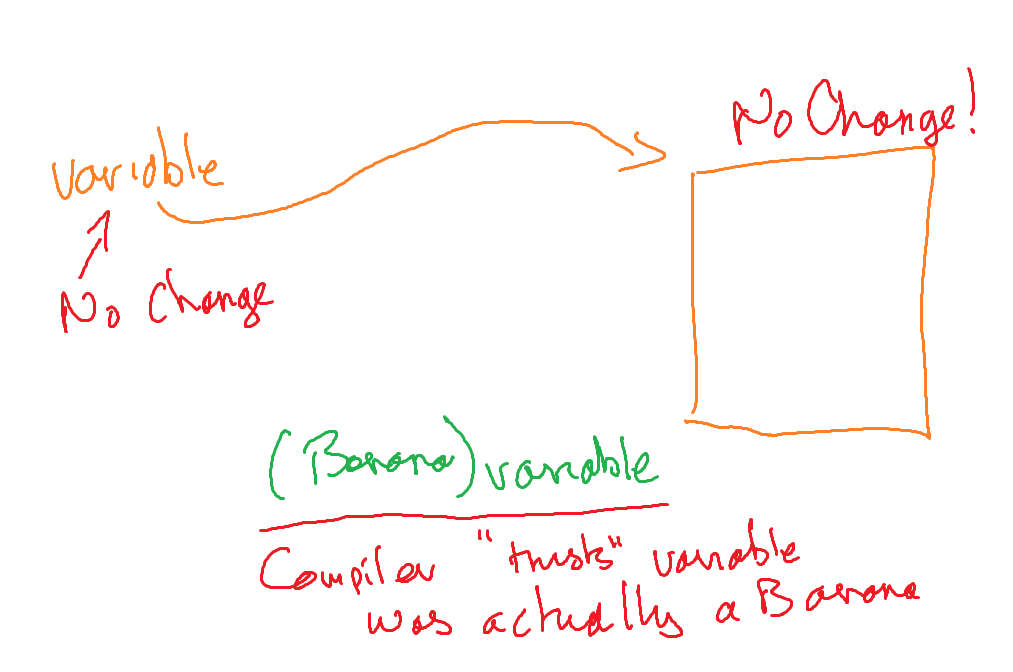 No Change!
variable
No Change
(Banana) variable
Compiler "trusts" variable
was actually a Banana